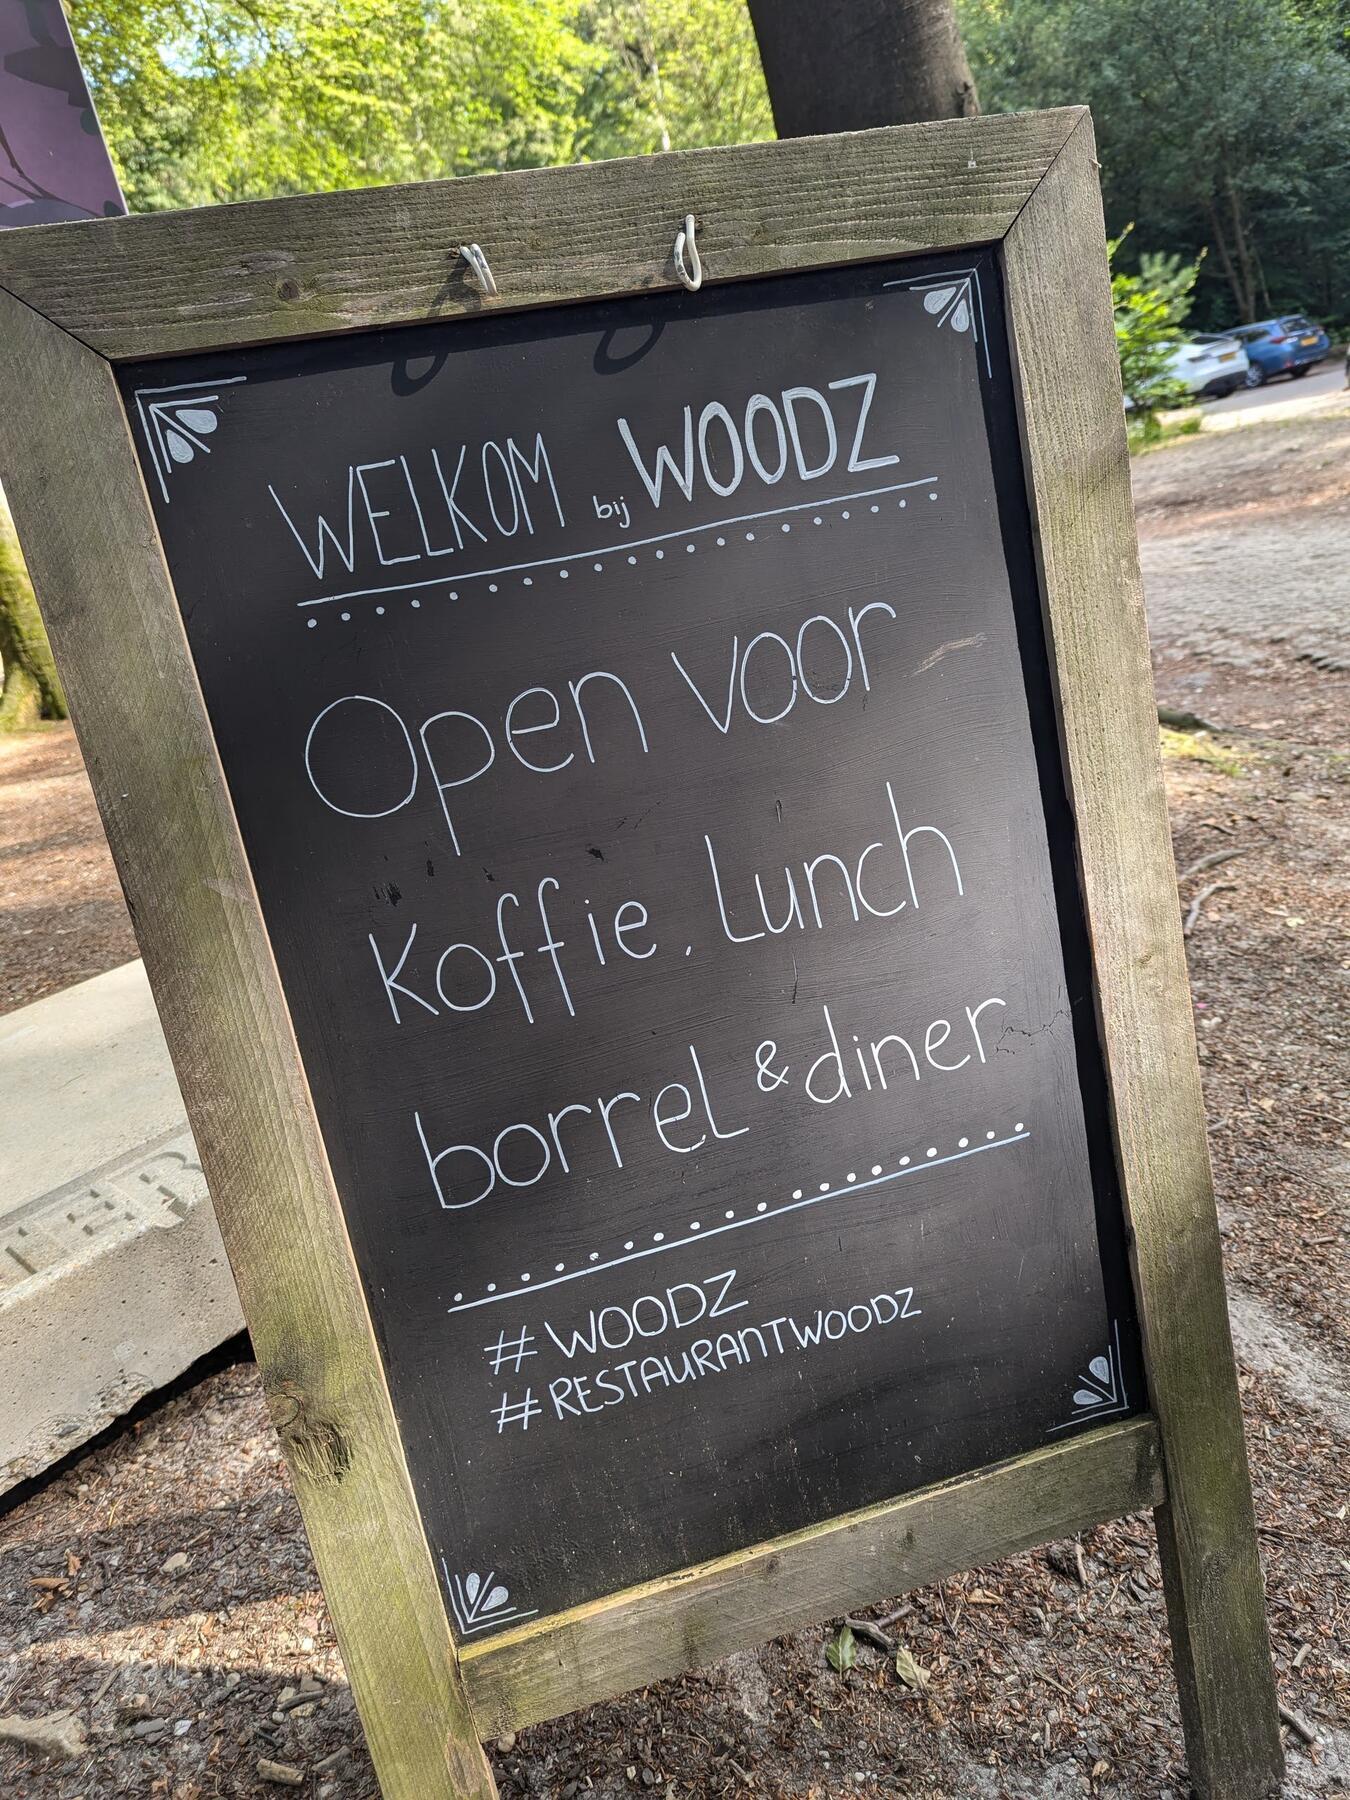 WELKOM bij WOODZ
Open voor
Koffie, Lunch
borrel & diner
#WOODZ
#RESTAURANTWOODZ